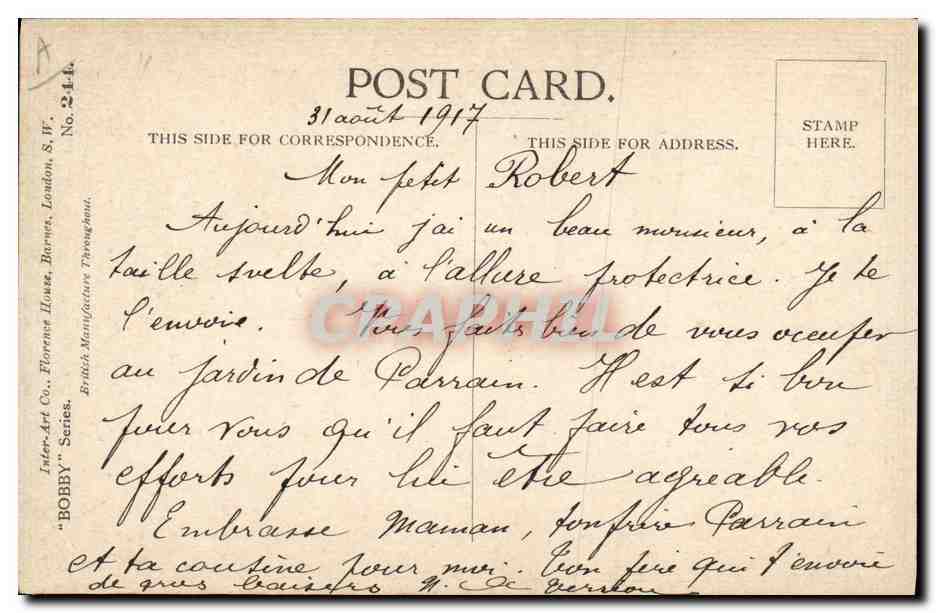 POST CARD.
31 août 1917
THIS SIDE FOR CORRESPONDENCE.
THIS SIDE FOR ADDRESS.
STAMP
HERE.
Mon petit Robert
Aujourd'hui j'ai un beau monsieur, à la
taille svelte, à l'allure protectrice. Je te
l'envoie. Vous faits bien de vous occuper
au jardin de Parrain. Il est si bon
pour vous qu'il faut faire tous vos
efforts pour lui être agréable.
Embrasse Maman, ton frère Parrain
et ta cousine pour moi. Ton père qui t'envoie
de gros baisers
Inter-Art Co., Florence House, Barnes, London, S.W.
"BOBBY" Series. No. 244.
British Manufacture Throughout.
CRAPHIL
A